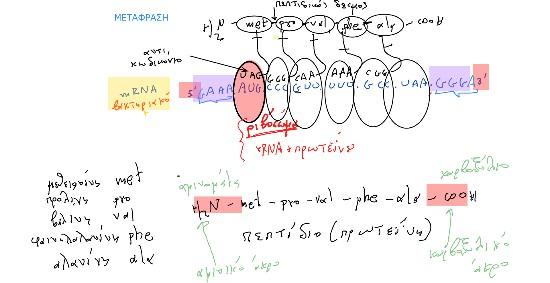 ΜΕΤΑΦΡΑΣΗ
πεπτιδικός δεσμός
H₂N met pro val phe ala COOH
αντι
κωδικόνιο
UAC GGG CAA AAA CGG
mRNA
βακτηριακό
5' GAAA AUG CCC GUU UUU GCC UAA GGGA 3'
ριβόσωμα
rRNA + πρωτεΐνες
μεθειονίνη met
προλίνη pro
βαλίνη val
φαινυλαλανίνη phe
αλανίνη ala
αμινομάδα
καρβοξύλιο
H₂N - met - pro - val - phe - ala - COOH
πεπτίδιο (πρωτεΐνη)
αμινικό άκρο
καρβοξυλικό
άκρο